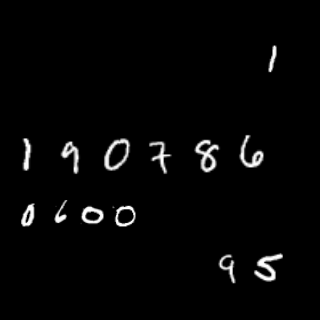 1
190786
0600
95